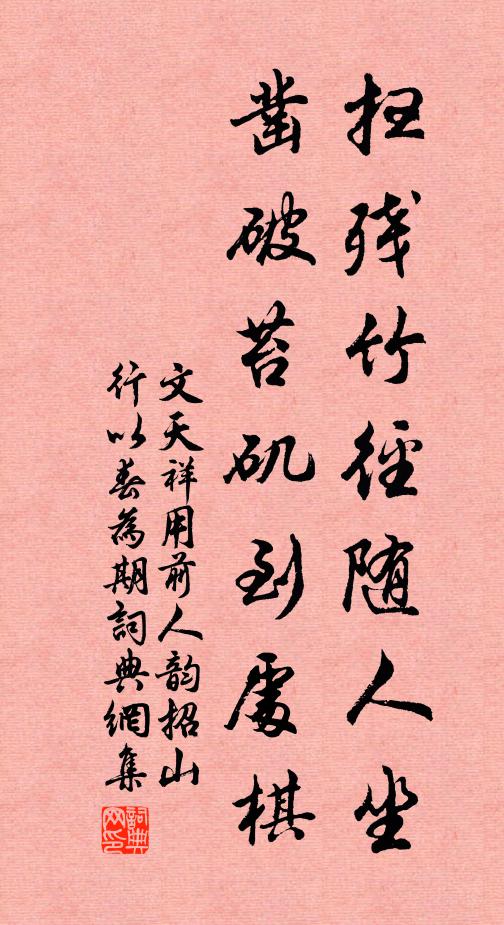 扫残竹径随人坐
凿破苔矶到处棋
文天祥用前人韵招山
行以春為期詞典網集
詞典网印